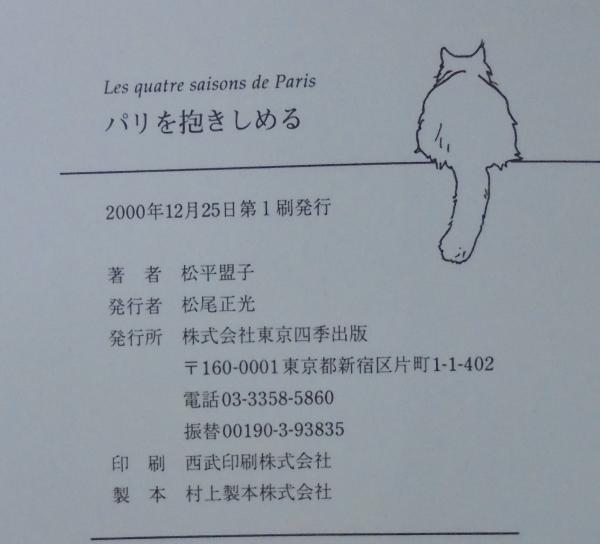 Les quatre saisons de Paris
パリを抱きしめる
2000年12月25日第1刷発行
著　者　松平盟子
発行者　松尾正光
発行所　株式会社東京四季出版
〒160-0001東京都新宿区片町1-1-402
電話03-3358-5860
振替00190-3-93835
印　刷　西武印刷株式会社
製　本　村上製本株式会社